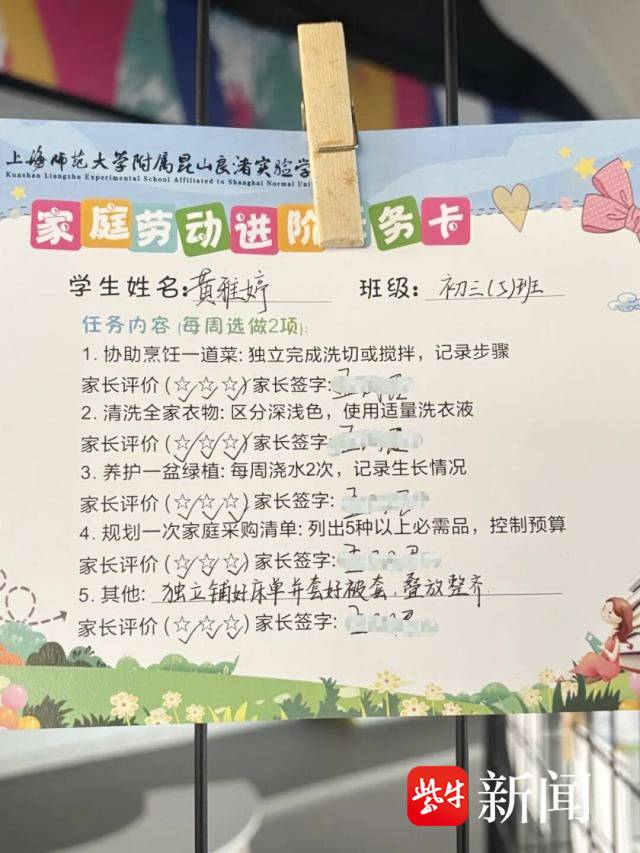 上海师范大学附属昆山良渚实验学
Kunshan Liangzhu Experimental School Affiliated to Shanghai Normal Uni
家庭劳动进阶任务卡
学生姓名:黄雅婷 班级:初三(5)班
任务内容(每周选做2项):
1. 协助烹饪一道菜: 独立完成洗切或搅拌，记录步骤
家长评价(☆☆☆)家长签字:
2. 清洗全家衣物: 区分深浅色，使用适量洗衣液
家长评价(☆☆☆)家长签字:
3. 养护一盆绿植: 每周浇水2次，记录生长情况
家长评价(☆☆☆)家长签字:
4. 规划一次家庭采购清单: 列出5种以上必需品，控制预算
家长评价(☆☆☆)家长签字:
5. 其他: 独立铺好床单并套好被套,叠放整齐.
家长评价(☆☆☆)家长签字:
紫牛新闻